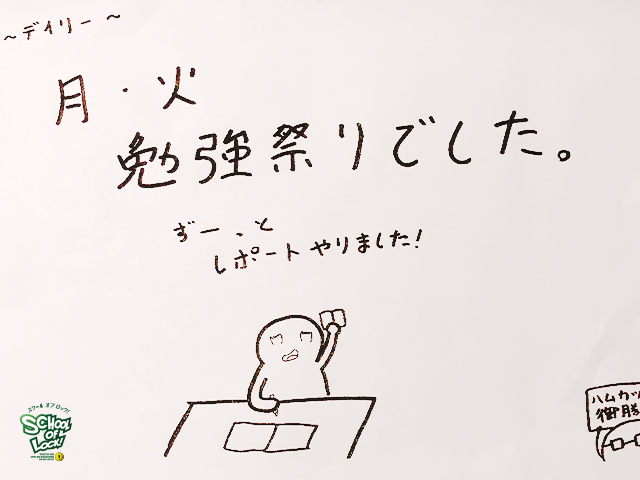 ～デイリー～
月・火
勉強祭りでした。
ずーっと
レポートやりました!
スクール オブ ロック!
SCHOOL OF LOCK!
ハムカツ
御勝